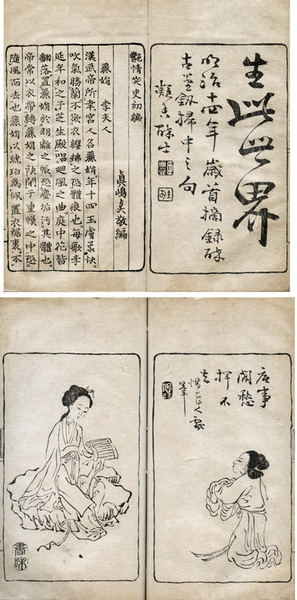 生此世界
明治十四年歳首摘録醉
古堂劔掃中之句
艷情笑史初編
麗娟 李夫人
漢武帝所幸宮人名麗娟年十四玉膚柔軟
吹氣勝蘭不欲衣纓拂之恐體痕也每歌李
延年和之于芝生殿唱廻風之曲庭中花皆
翻落置麗娟於明離之帳恐塵垢污其體也
帝常以衣帶縛麗娟之袂閉於重幕之中恐
隨風而去也麗娟以琥珀爲佩置衣裾裏不
底事
閒愁
揮不
去